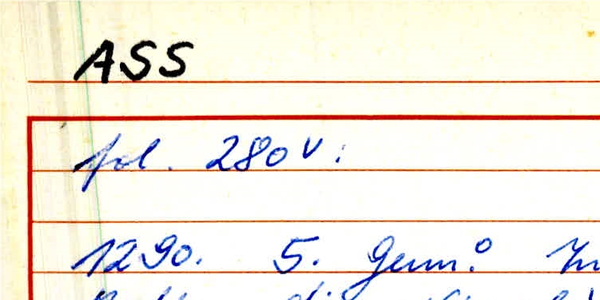 ASS
fol. 280v:
1290. 5. Genn.º In